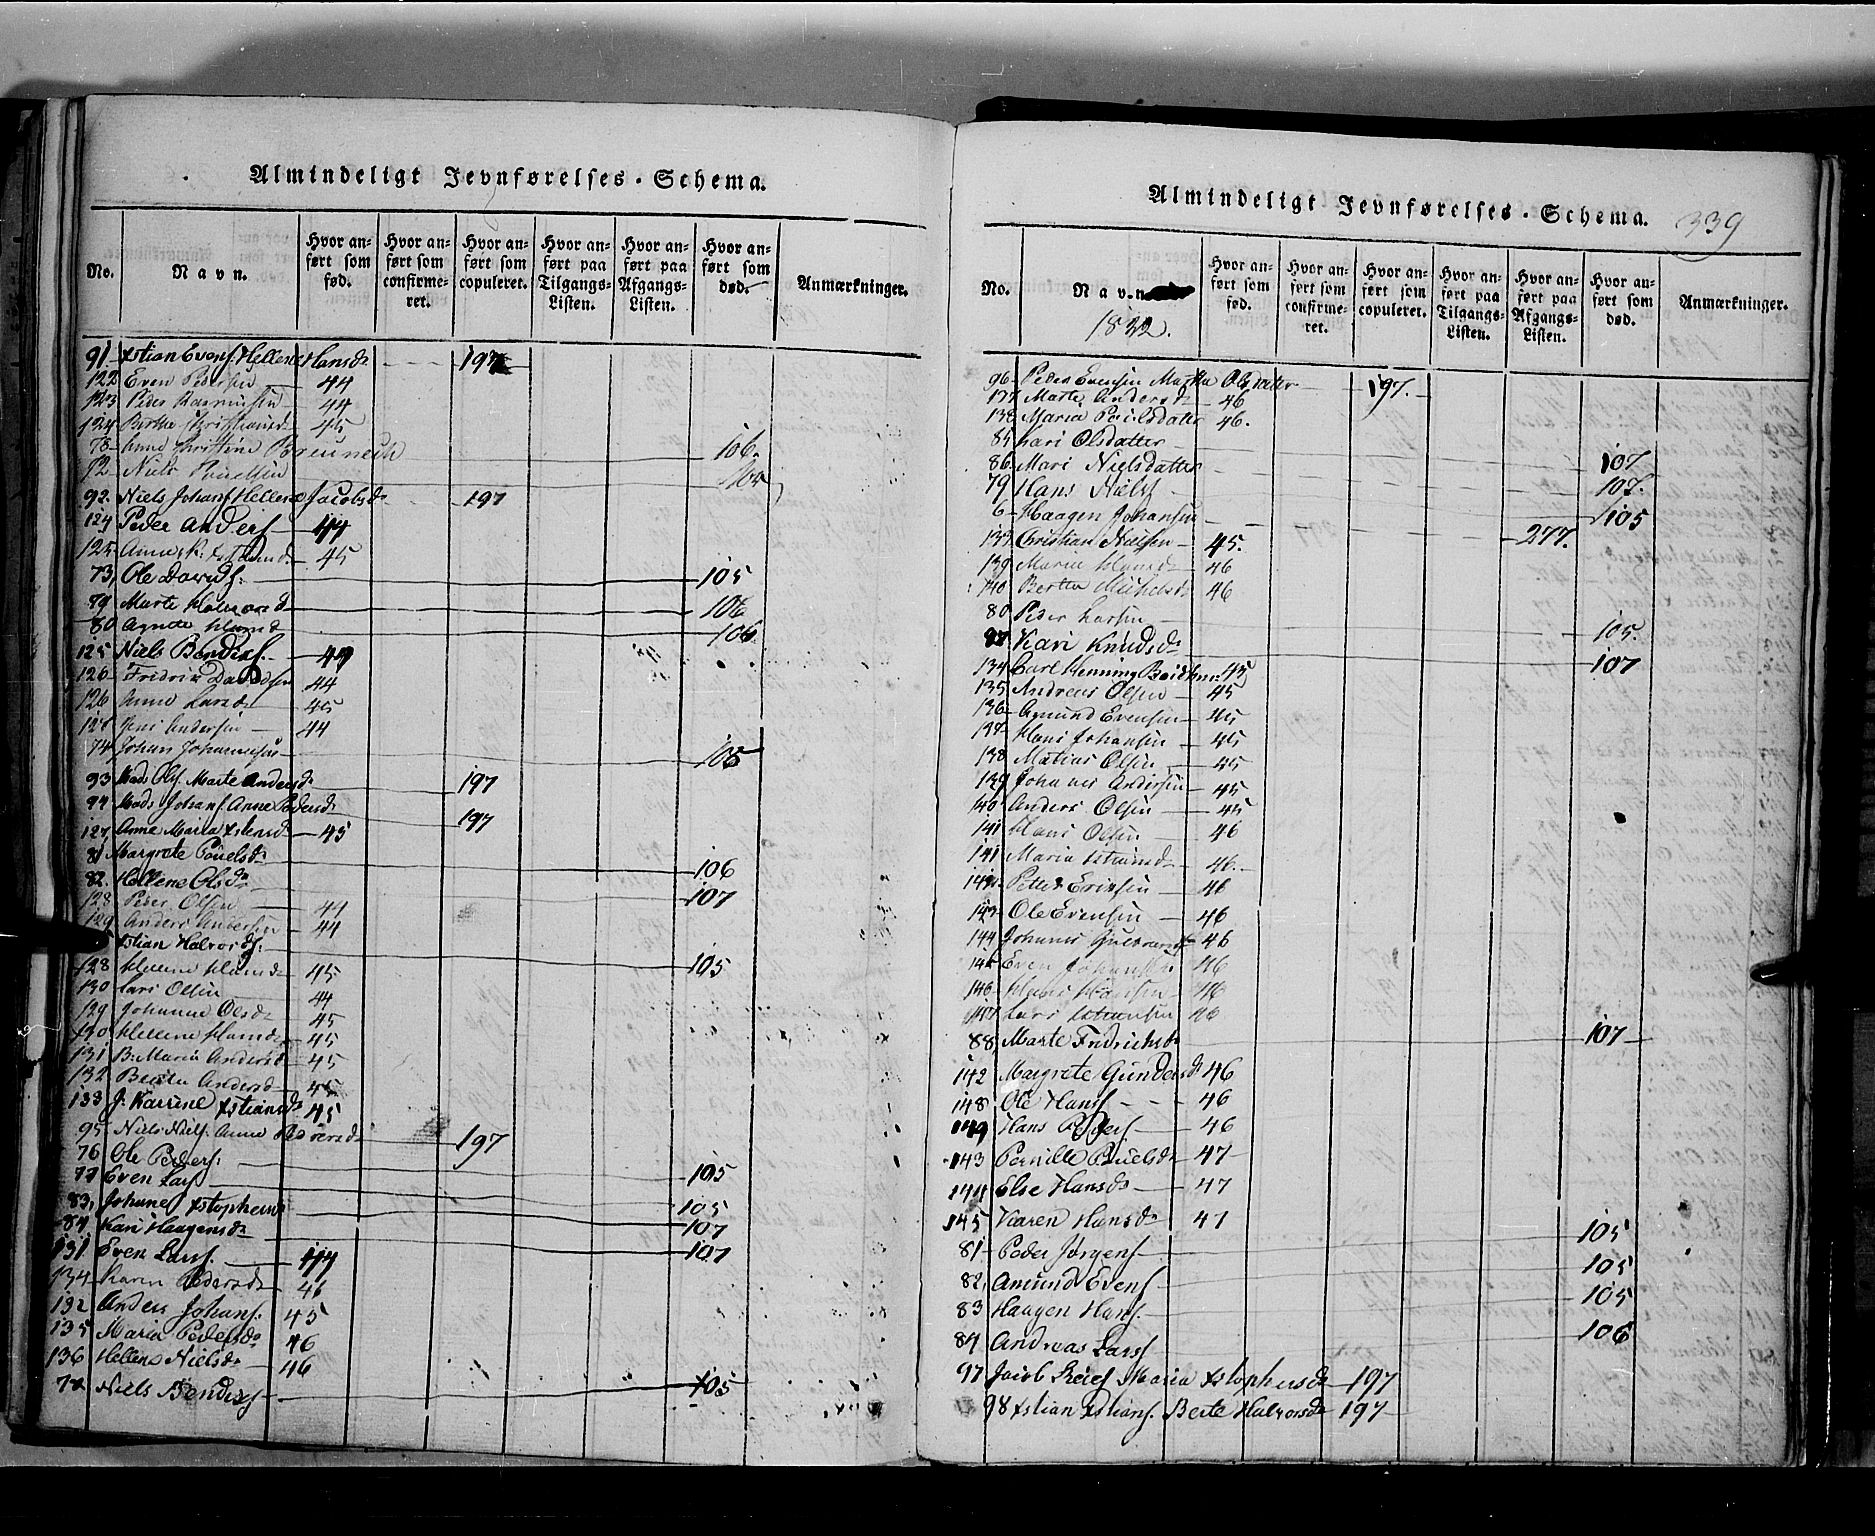 Almindeligt Jevnførelses-Schema.
No. Navn. Hvor anført som fød. Hvor anført som confirmeret. Hvor anført som copuleret. Hvor anført paa Tilgangs-Listen. Hvor anført paa Afgangs-Listen. Hvor anført som død. Anmærkninger.
91. Xstian Evens. Hellene Hansd. 197
122 Even Pedersen 44
123 Peder Rasmussen 44
124 Berthe Christiansd 45
78 Anne Christine
106.
72 Niels
92. Niels Johans. Hellene Jacobsd 197
124 Peder Anders. 44
125 Anne 45
73, Ole Davids. 105
79 Marte Halvorsd 106
80 Agnete Hansd 106
125 Niels Bendixs. 44
126 Fredrik Davidsen 44
126 Anne Larsd 45
127 Jens Andersen 44
74 Johan Johannesen 105
93 Mads Ols. Marte Andersd 197
94 Mads Johans. Anne Pedersd 197
127, Anne Maria Xstensd 45
81 Margrete Pouelsd 106
82. Hellene Olsd 107
128 Peder Olsen 44
129 Anders Andersen 44
Xstian Halvords. 105
128 Hellene Hansd 45
130 Lars Olsen 44
129 Johanne Olsd 45
130 Hellene Hansd 45
131 B. Maria Andersd 45
132 Berthe Andersd 45
133 J. Karrine Xstiansd 45
95 Niels Niels. Anne 197
76 Ole Peders. 105
77 Even Lars. 105
83, Johanne Xstophersd 107
84 Kari Haagensd 107
131 Even Lars. 44
134 Karen Pedersd 46
132 Anders Johans. 45
135 Maria Pedersd 46
136 Hellene Nielsd 46
77 Niels Bendixs. 105
Almindeligt Jevnførelses-Schema. 339
No. Navn. Hvor anført som fød. Hvor anført som confirmeret. Hvor anført som copuleret. Hvor anført paa Tilgangs-Listen. Hvor anført paa Afgangs-Listen. Hvor anført som død. Anmærkninger.
1832.
96 Peder Evensen Martha Olsdatter 197.
137 Marte Andersd 46
138 Maria Poulsdatter 46.
85 Kari Olsdatter 107
86 Mari Nielsdatter 107.
79 Hans Niels. 105
6 Haagen Johansen 277.
133 Christian Nielsen 45.
139 Maria Hansd 46
140 Berthe Michelsd 46
80 Peder Larsen 105.
87 Kari Knudsd 107
134 Carl Henning 45
135 Andreas Olsen 45
136 Amund Evensen 45
137 Hans Johansen 45
138 Matias Olsen 45
139 Johannes Andersen 45
140 Anders Olsen 45
141 Hans Olsen 46
141 Maria 46.
142 Petter Eriksen 46
143 Ole Evensen 46
144 Johannes 46
145 Even Johansen 46
146 Hans Hansen 46
147 Lars 46
88, Marte Fredrichsd 107
142 Margrete Gundersd 46
148 Ole Hans. 46
149 Hans Peders. 46
143 Pernille Pouelsd 47
144 Else Hansd 47
145 Karen Hansd 47
81 Peder Jørgens. 105
82, Amund Evens. 105
83 Haagen Hans. 105
84 Andreas Lars. 106
97 Jacob Maria Xstophersd 197
98 Xstian Xstians. Berte Halvorsd 197